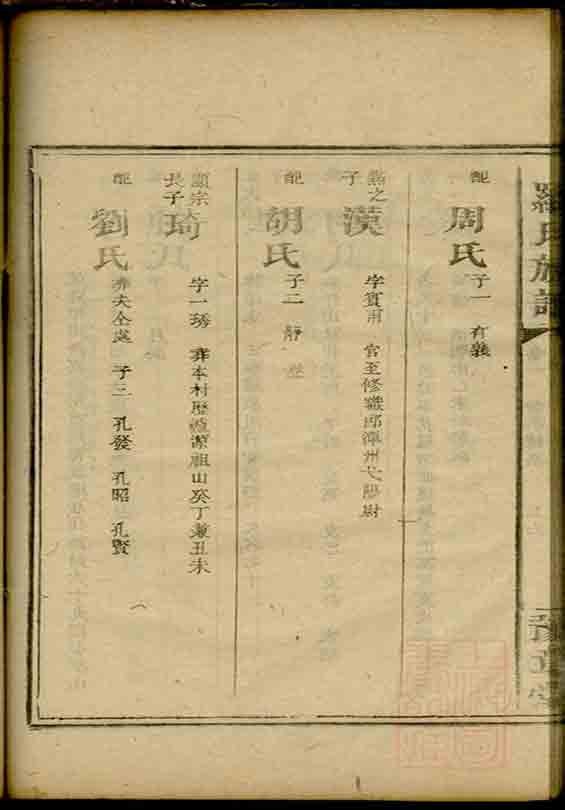 羅氏族譜
豫章堂
配 周氏 子一 有義
子 漢 字賓甫 官至修職郎潭州弋陽尉
配 胡氏 子二 靜
顯宗長子 琦 字一琇 葬本村歷源祖山癸丁兼丑未
配 劉氏 葬夫仝處 子三 孔發 孔昭 孔賢